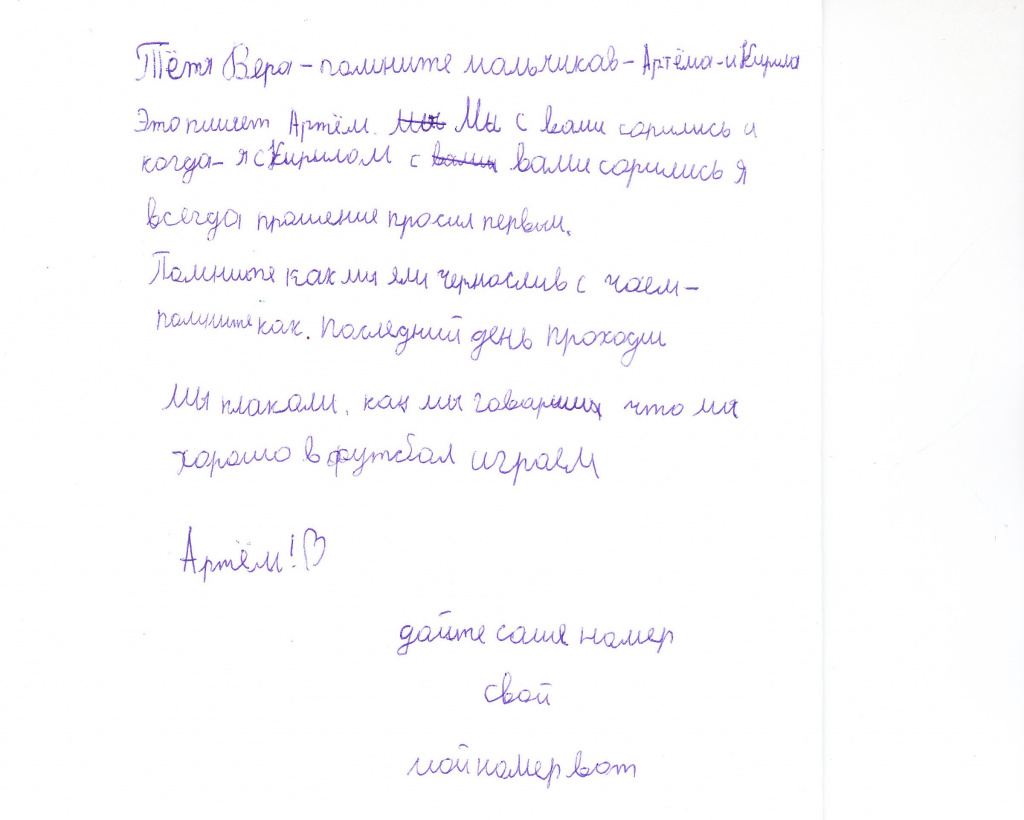 Тётя Вера - помните мальчиков - Артёма - и Кирила
Это пишет Артём. Мы Мы с вами сорились и
когда - я с Кирилом с вами вами сорились я
всегда прошение просил первым.
Помните как мы ели чернослив с чаем -
помните как. последний день проходил
мы плакали, как мы говорили что мы
хорошо в футбол играем
Артём!♡
дайте саше номер
свой
мой номер вот